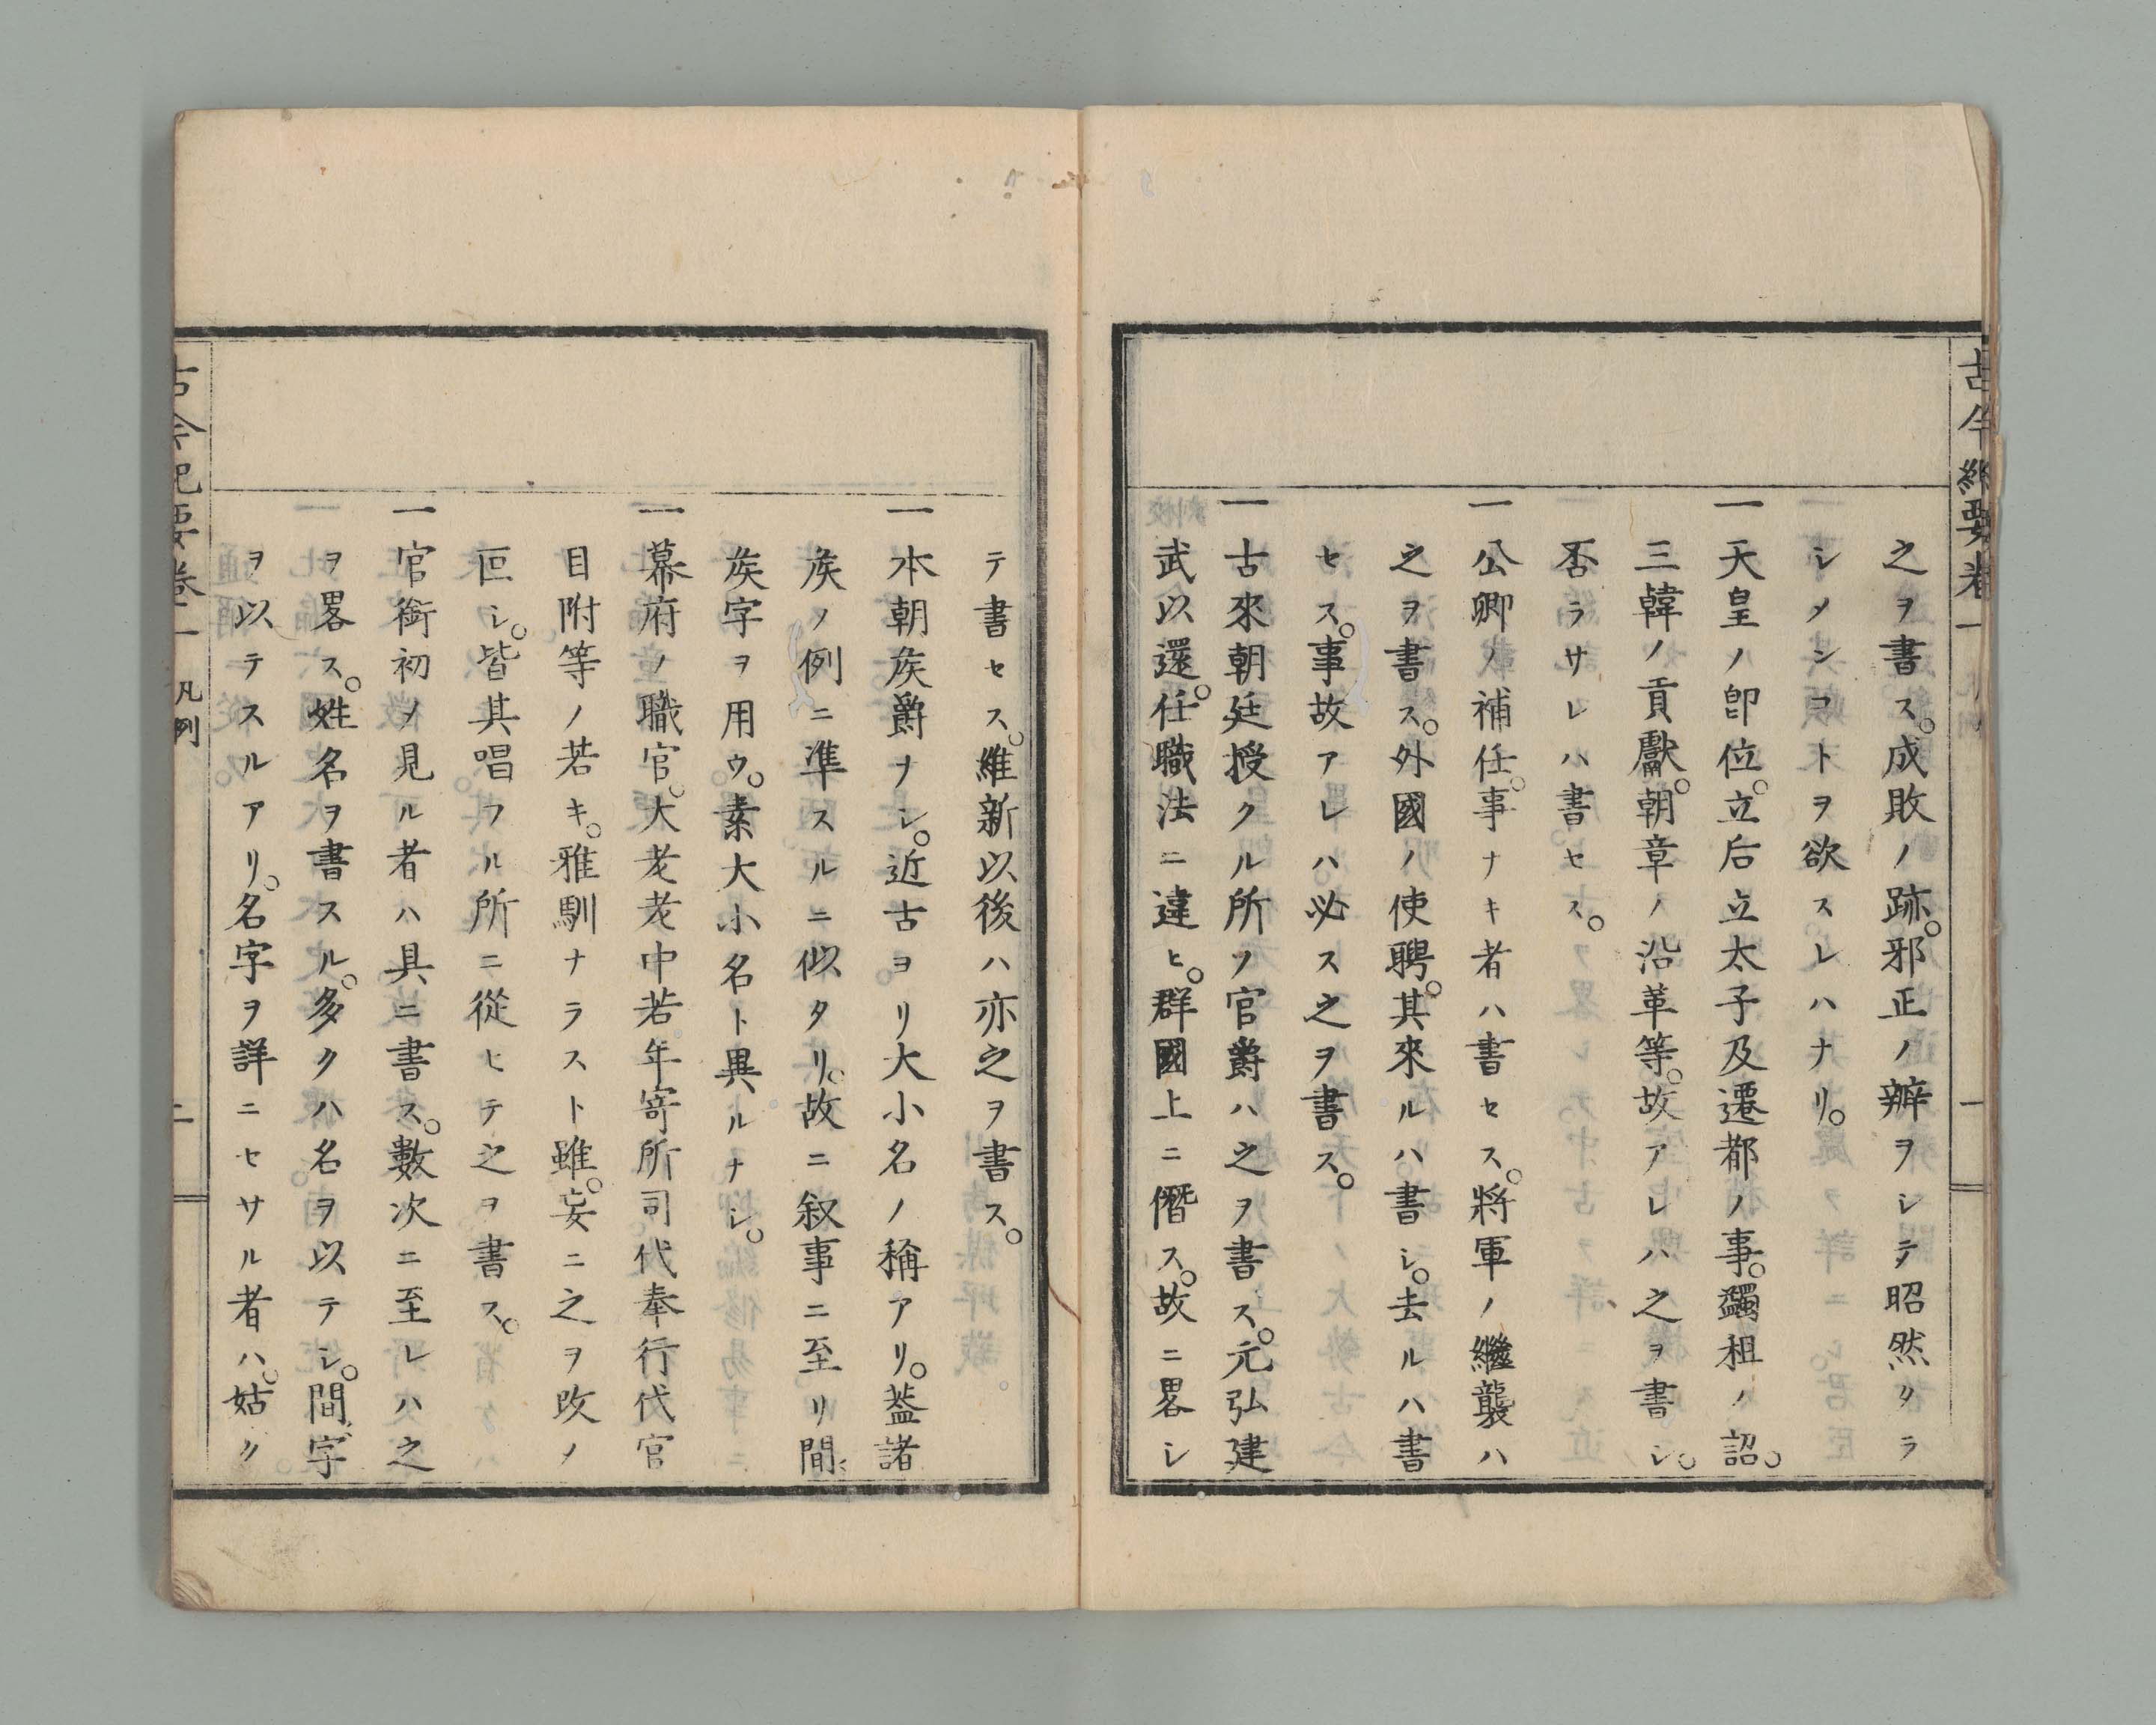 之ヲ書ス。成敗ノ跡。邪正ノ辨ヲシテ昭然タラ
シメンコトヲ欲スレハナリ。
一天皇ノ卽位。立后立太子及遷都ノ事。蠲租ノ詔。
三韓ノ貢獻。朝章ノ沿革等。故アレハ之ヲ書シ。
否ラサレハ書セス。
一公卿ノ補任。事ナキ者ハ書セス。將軍ノ繼襲ハ
之ヲ書ス。外國ノ使聘。其來ルハ書シ。去ルハ書
セス。事故アレハ必ス之ヲ書ス。
一古來朝廷授クル所ノ官爵ハ之ヲ書ス。元弘建
武以還。任職法ニ違ヒ。群國上ニ僭ス。故ニ畧シ
テ書セス。維新以後ハ亦之ヲ書ス。
一本朝矦爵ナシ。近古ヨリ大小名ノ稱アリ。葢諸
矦ノ例ニ準スルニ似タリ。故ニ叙事ニ至リ間〻
矦字ヲ用ウ。素大小名ト異ルナシ。
一幕府ノ職官。大老老中若年寄所司代奉行代官
目附等ノ若キ。雅馴ナラスト雖。妄ニ之ヲ改ノ
叵シ。皆其唱フル所ニ從ヒテ之ヲ書ス。
一官銜初メ見ル者ハ具ニ書ス。數次ニ至レハ之
ヲ畧ス。姓名ヲ書スル。多クハ名ヲ以テシ。間〻字
ヲ以テスルアリ。名字ヲ詳ニセサル者ハ。姑ク
古今紀要卷一 凡例 二